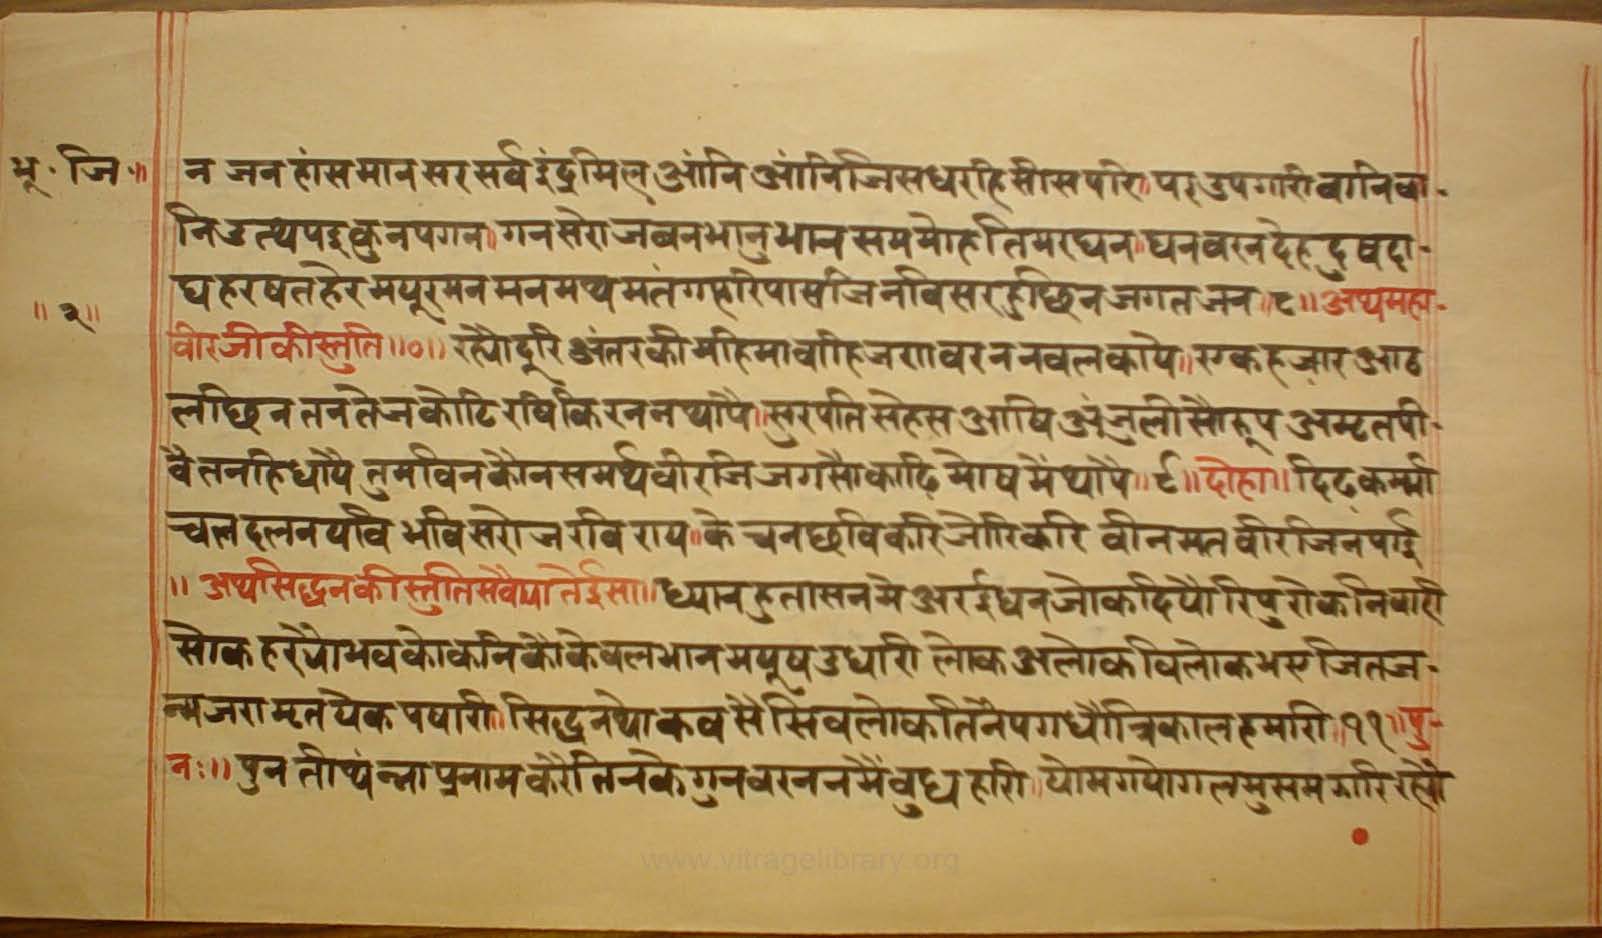 भू. जि. ॥ न जन हांस मान सर सर्व इंद्र मिल आंनि आंनि जिस धरहि सीस परि ॥ पर उपगारी वानि वा-
नि उत्थपइ कुनय गन ॥ गन सरोज वन भानु भान सम मोह तिमर घन ॥ घन वरन देह दुष दा-
॥ २ ॥ घ हर षत हेर मयूर मन मनमथ मतंग हरि पास जिन विसरहु छिन जगत जन ॥ ८ ॥ अथ महा-
वीरजी की स्तुति ॥०॥ रह्यौ दूरि अंतर की महिमा वाहिज गा वरनन वल कापे ॥ एक हजार आठ
लछिन तन तेज कोटि रवि किरन न थापै ॥ सुरपति सहस आषि अंजुली सौ रूप अमृत पी-
वै तनहि धापै तुम विन कौन समर्थ वीर जि जगसौ काढि मोष में थापै ॥ ९ ॥ दोहा ॥ दिढ कर्मा
चल दलन पवि भवि सरोज रवि राय ॥ कंचन छवि करि जोरि करि वी नमत वीर जिन पाई
॥ अथ सिद्धन की स्तुति सवैया तेईसा ॥ ध्यान हुतासन मे अर ईधन जोक दियौ रिपु रोक निवारी
सोक हर्यौ भव कोकनि कौ केवल भान मयूष उधारी लोक अलोक विलोक भए जित ज-
न्म जरा मृत पंक पषारी ॥ सिद्धन थोक वसै सिवलोक तिनै पग धौ त्रिकाल हमारी ॥ ११ ॥ पु-
नः ॥ पुन तीर्थंन्ना प्रनाम करै तिनके गुन वरनन मैं वुध हारी ॥ योम गयो गल मुसम गारि रह्यौ
www.vitragelibrary.org